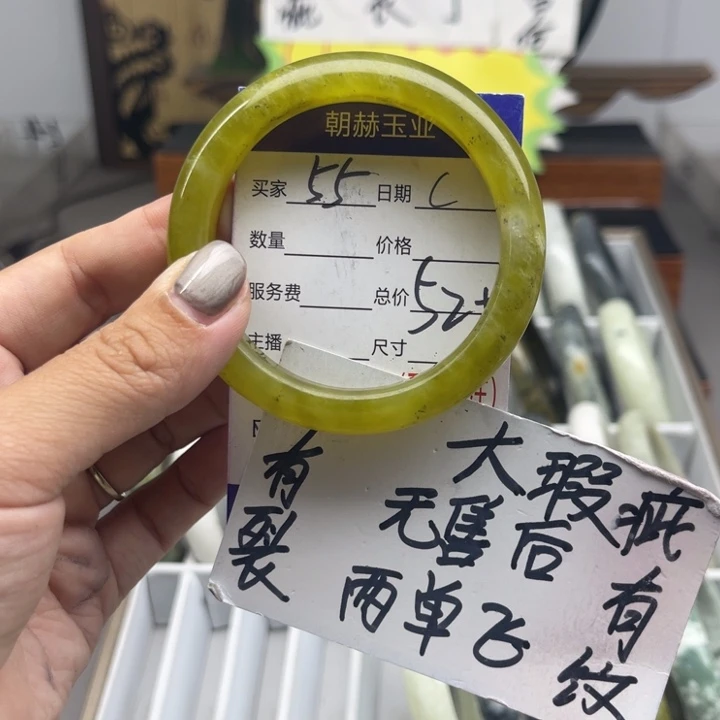 朝赫玉业
买家 55 日期
数量 价格
服务费 总价 52
主播 尺寸
有裂
大瑕疵
无售后
有纹
两单飞